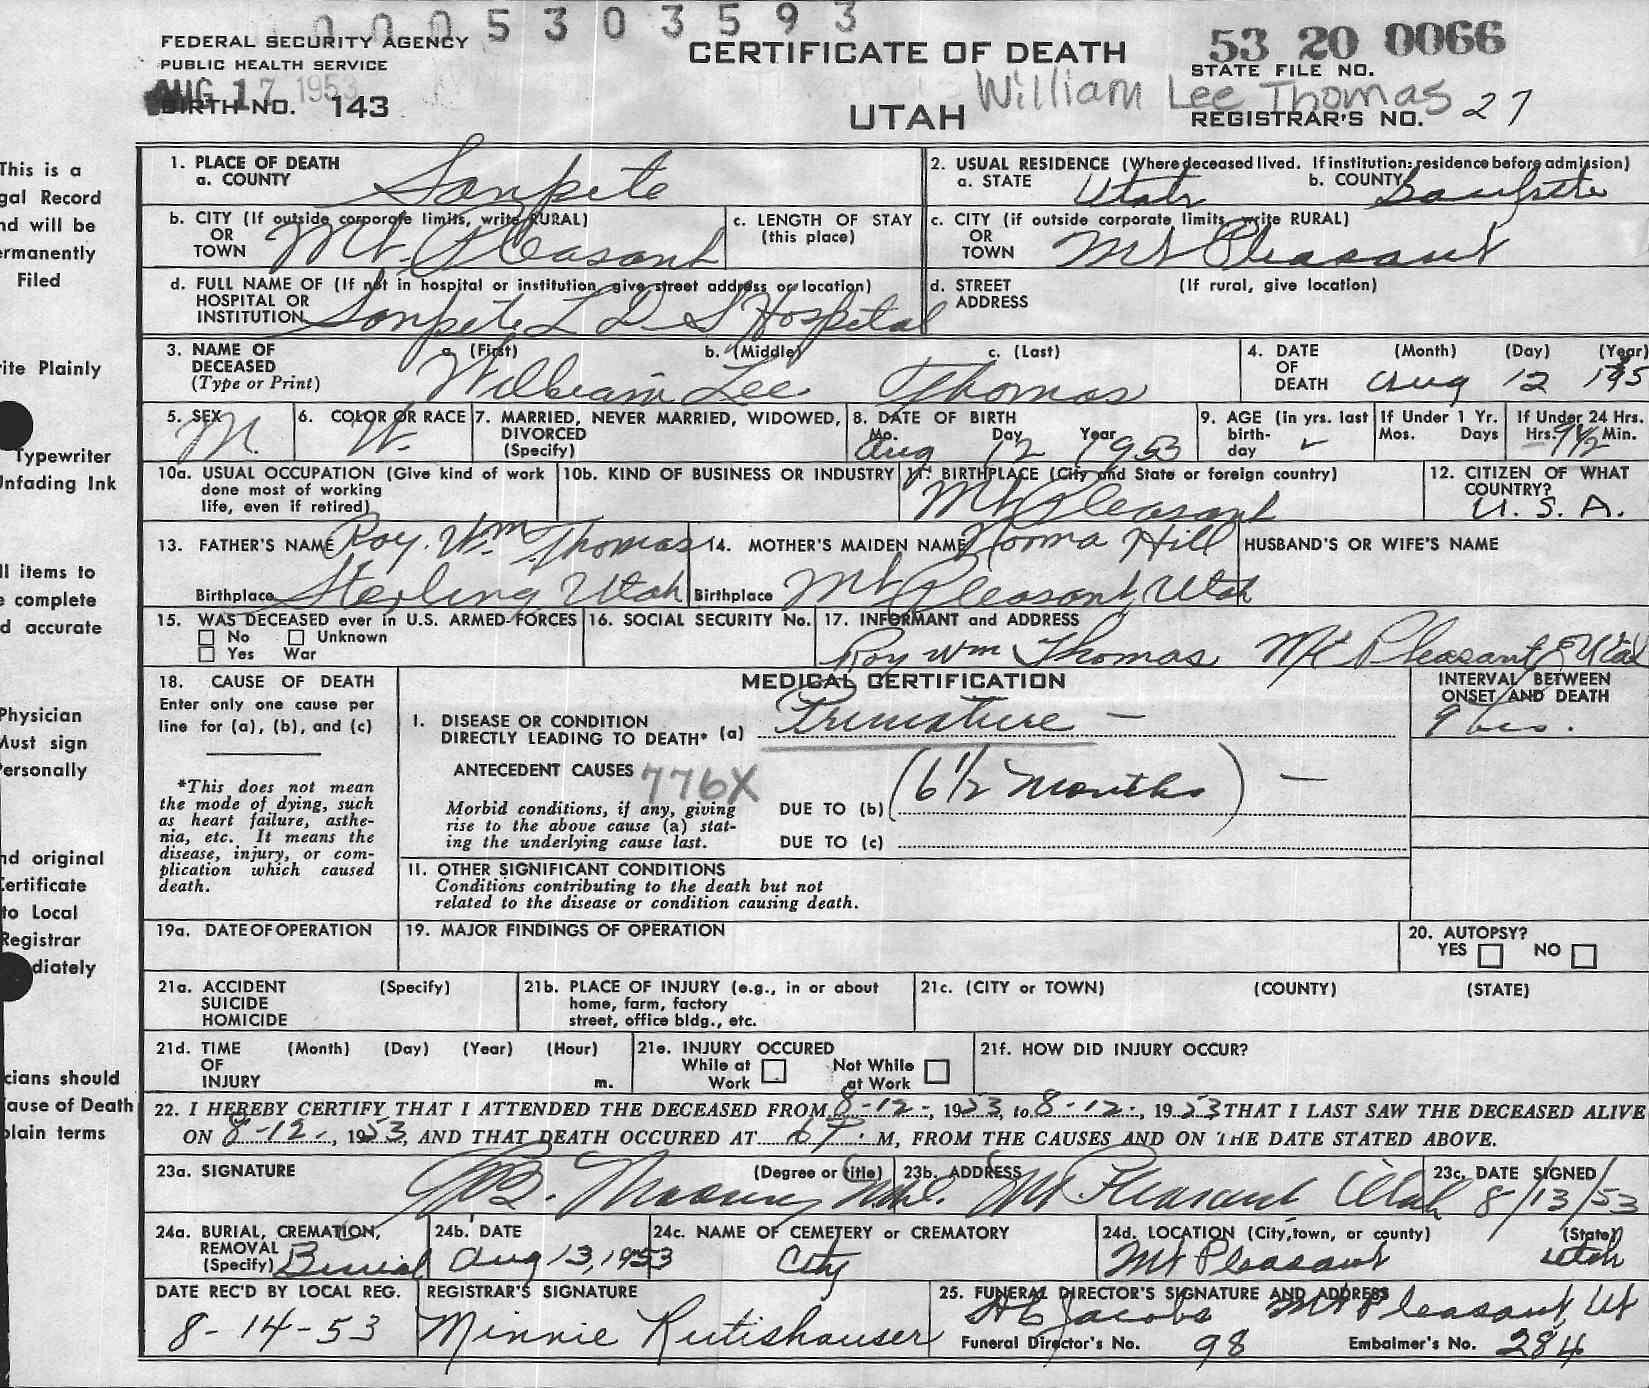 0005303593
FEDERAL SECURITY AGENCY
PUBLIC HEALTH SERVICE
CERTIFICATE OF DEATH
53 20 0066
STATE FILE NO.
AUG 17 1953
BIRTH NO. 143
UTAH
William Lee Thomas
REGISTRAR'S NO. 27
This is a
gal Record
nd will be
ermanently
Filed
rite Plainly
Typewriter
Unfading Ink
ll items to
e complete
d accurate
Physician
Must sign
Personally
nd original
Certificate
to Local
Registrar
diately
cians should
ause of Death
plain terms
1. PLACE OF DEATH
a. COUNTY Sanpete
2. USUAL RESIDENCE (Where deceased lived. If institution: residence before admission)
a. STATE Utah b. COUNTY Sanpete
b. CITY (If outside corporate limits, write RURAL)
OR
TOWN Mt. Pleasant
c. LENGTH OF STAY
(this place)
c. CITY (if outside corporate limits, write RURAL)
OR
TOWN Mt Pleasant
d. FULL NAME OF (If not in hospital or institution, give street address or location)
HOSPITAL OR
INSTITUTION Sanpete L D S Hospital
d. STREET
ADDRESS
(If rural, give location)
3. NAME OF
DECEASED
(Type or Print)
a. (First) b. (Middle) c. (Last)
William Lee Thomas
4. DATE
OF
DEATH
(Month) (Day) (Year)
Aug 12 195
5. SEX M.
6. COLOR OR RACE W.
7. MARRIED, NEVER MARRIED, WIDOWED,
DIVORCED
(Specify)
8. DATE OF BIRTH
Mo. Day Year
Aug 12 1953
9. AGE (in yrs. last
birth-
day
If Under 1 Yr.
Mos. Days
If Under 24 Hrs.
Hrs. Min.
10a. USUAL OCCUPATION (Give kind of work
done most of working
life, even if retired)
10b. KIND OF BUSINESS OR INDUSTRY
11. BIRTHPLACE (City and State or foreign country)
Mt Pleasant
12. CITIZEN OF WHAT
COUNTRY?
U. S. A.
13. FATHER'S NAME Roy. Wm Thomas
Birthplace Sterling Utah
14. MOTHER'S MAIDEN NAME Norma Hill
Birthplace Mt Pleasant, Utah
HUSBAND'S OR WIFE'S NAME
15. WAS DECEASED ever in U.S. ARMED FORCES
No Unknown
Yes War
16. SOCIAL SECURITY No.
17. INFORMANT and ADDRESS
Roy Wm Thomas Mt Pleasant Utah
18. CAUSE OF DEATH
Enter only one cause per
line for (a), (b), and (c)
*This does not mean
the mode of dying, such
as heart failure, asthe-
nia, etc. It means the
disease, injury, or com-
plication which caused
death.
MEDICAL CERTIFICATION
I. DISEASE OR CONDITION
DIRECTLY LEADING TO DEATH* (a) Premature -
ANTECEDENT CAUSES 776X
Morbid conditions, if any, giving
rise to the above cause (a) stat-
ing the underlying cause last.
DUE TO (b) (6 1/2 months) -
DUE TO (c)
II. OTHER SIGNIFICANT CONDITIONS
Conditions contributing to the death but not
related to the disease or condition causing death.
INTERVAL BETWEEN
ONSET AND DEATH
9 hrs.
19a. DATE OF OPERATION
19. MAJOR FINDINGS OF OPERATION
20. AUTOPSY?
YES NO
21a. ACCIDENT (Specify)
SUICIDE
HOMICIDE
21b. PLACE OF INJURY (e.g., in or about
home, farm, factory
street, office bldg., etc.
21c. (CITY or TOWN) (COUNTY) (STATE)
21d. TIME (Month) (Day) (Year) (Hour)
OF
INJURY m.
21e. INJURY OCCURED
While at Not While
Work at Work
21f. HOW DID INJURY OCCUR?
22. I HEREBY CERTIFY THAT I ATTENDED THE DECEASED FROM 8-12-, 1953, to 8-12-, 1953 THAT I LAST SAW THE DECEASED ALIVE
ON 8-12-, 1953, AND THAT DEATH OCCURED AT M, FROM THE CAUSES AND ON THE DATE STATED ABOVE.
23a. SIGNATURE (Degree or title)
23b. ADDRESS
Mt Pleasant Utah
23c. DATE SIGNED
8/13/53
24a. BURIAL, CREMATION,
REMOVAL
(Specify) Burial
24b. DATE
Aug 13, 1953
24c. NAME OF CEMETERY or CREMATORY
City
24d. LOCATION (City, town, or county) (State)
Mt Pleasant Utah
DATE REC'D BY LOCAL REG.
8-14-53
REGISTRAR'S SIGNATURE
Minnie Rutishauser
25. FUNERAL DIRECTOR'S SIGNATURE AND ADDRESS
Jacobs Mt Pleasant, Ut
Funeral Director's No. 98 Embalmer's No. 284